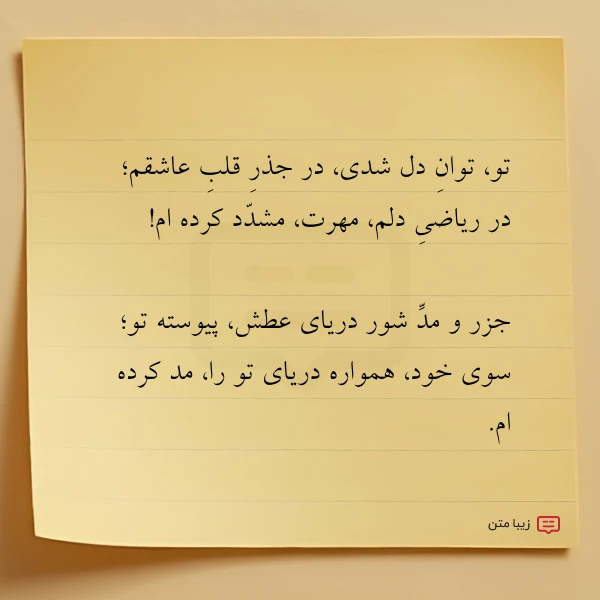 تو، توانِ دل شدی، در جذرِ قلبِ عاشقم؛
در ریاضیِ دلم، مهرت، مشدّد کرده ام!
جزر و مدِّ شور دریای عطش، پیوسته تو؛
سوی خود، همواره دریای تو را، مد کرده
ام.
زیبا متن